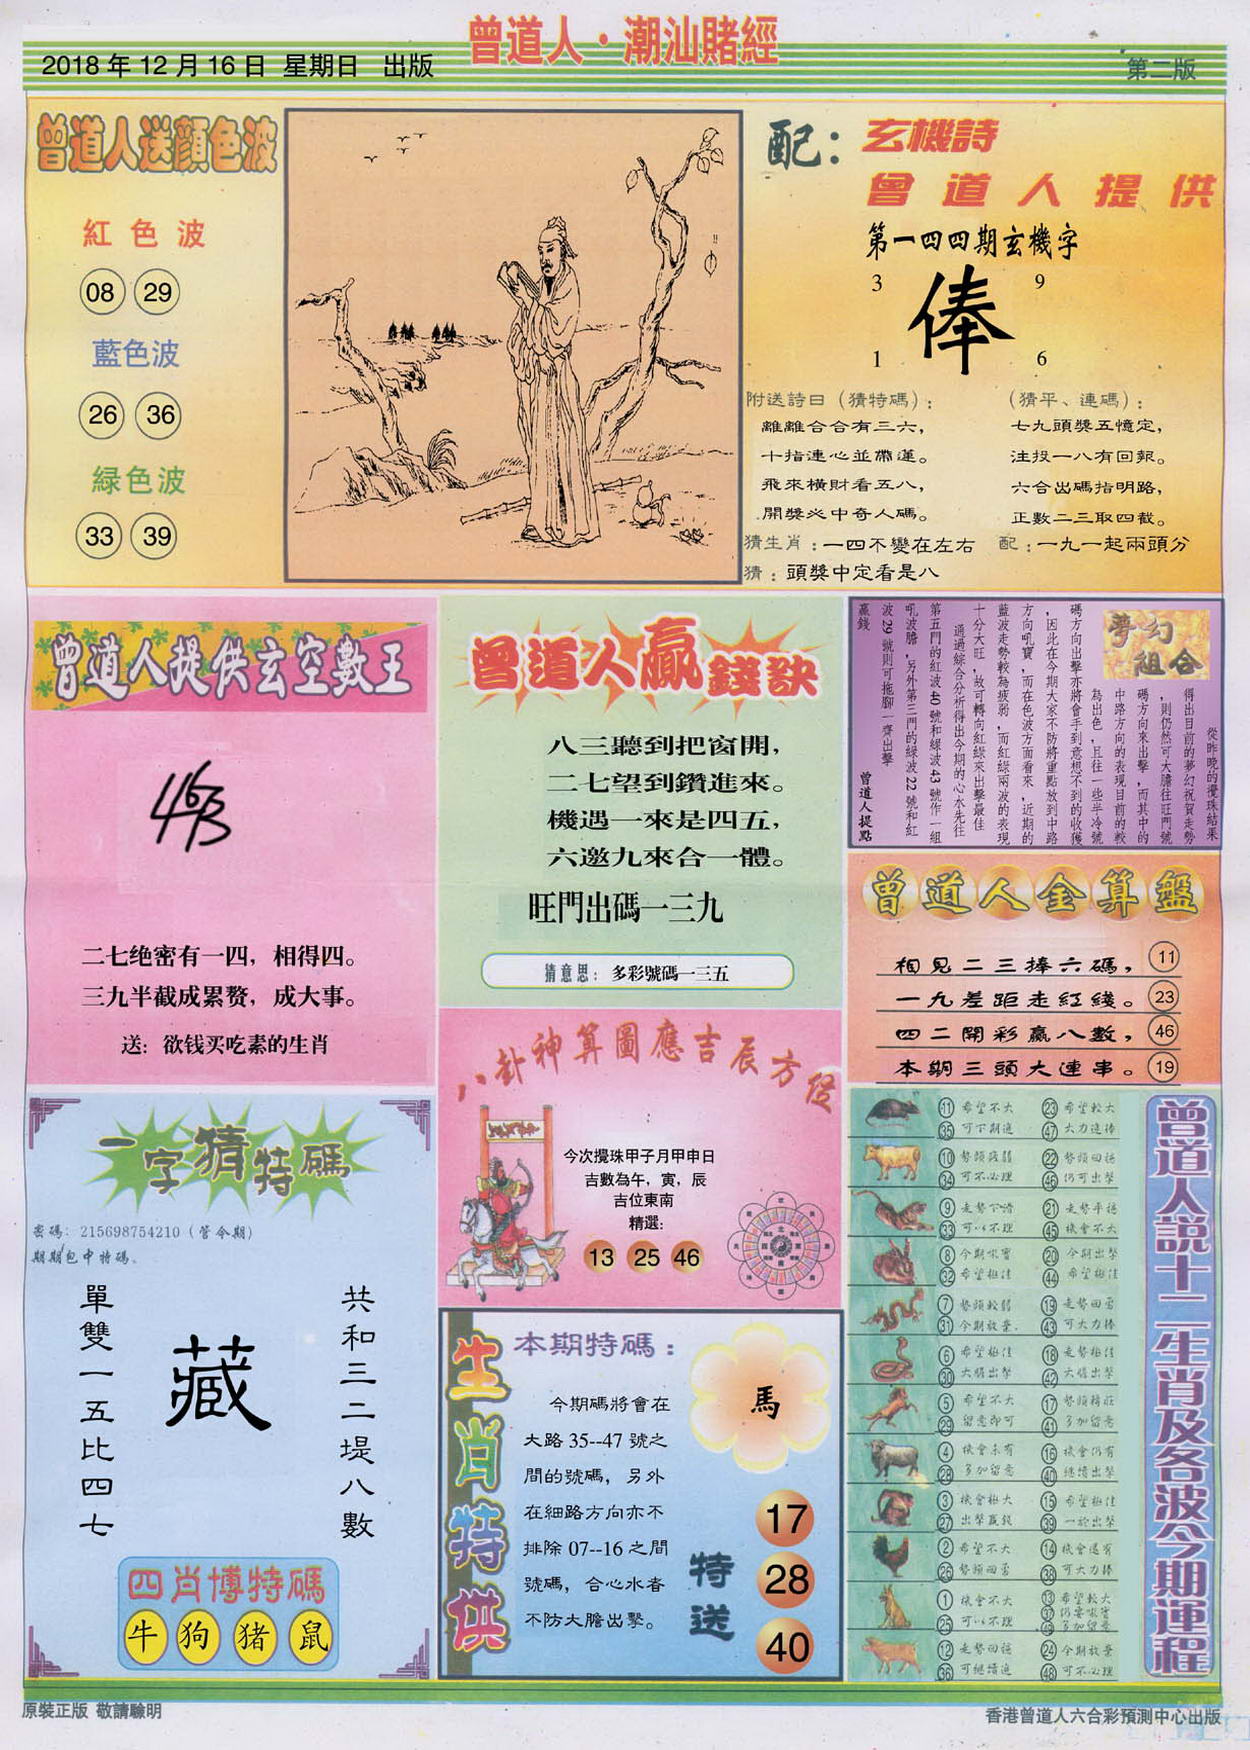 曾道人·潮汕賭經
2018 年 12 月 16 日 星期日 出版
第二版
曾道人送顔色波
紅色波
08 29
藍色波
26 36
緑色波
33 39
配：玄機詩
曾道人提供
第一四四期玄機字
3 9
俸
1 6
附送詩曰（猜特碼）：
離離合合有三六，
十指連心並帶蓮。
飛來橫財看五八，
開獎必中奇人碼。
猜生肖：一四不變在左右
猜：頭獎中定看是八
（猜平、連碼）：
七九頭獎五憶定，
注投一八有回報。
六合出碼指明路，
正數二三取四截。
配：一九一起兩頭分
曾道人提供玄空數王
463
二七绝密有一四，相得四。
三九半截成累赘，成大事。
送：欲钱买吃素的生肖
曾道人贏錢訣
八三聽到把窗開，
二七望到鑽進來。
機遇一來是四五，
六邀九來合一體。
旺門出碼一三九
猜意思：多彩號碼一三五
夢幻組合
從昨晚的攪珠結果
得出目前的夢幻祝賀走勢
，則仍然可大膽往旺門號
碼方向來出擊，而其中的
中路方向的表現目前的較
為出色，且往一些半冷號
碼方向出擊亦將會手到意想不到的收獲
，因此在今期大家不防將重點放到中路
方向吼寶，而在色波方面看來，近期的
藍波走勢較為疲弱，而紅綠兩波的表現
十分大旺，故可轉向紅綠來出擊最佳
通過綜合分析得出今期的心水先往
第五門的紅波 40 號和綠波 43 號作一組
吼波膽，另外第三門的綠波 22 號和紅
波 29 號則可拖腳一齊出擊
贏錢
曾道人提點
曾道人金算盤
相見二三捧六碼， 11
一九差距走紅綫。 23
四二開彩贏八數， 46
本期三頭大連串。 19
八卦神算圖應吉辰方位
今次攪珠甲子月甲申日
吉數為午，寅，辰
吉位東南
精選：
13 25 46
一字猜特碼
密碼：215698754210（管今期）
期期包中特碼。
單雙一五比四七
藏
共和三二堤八數
四肖博特碼
牛 狗 猪 鼠
生肖特供
本期特碼：
今期碼將會在
大路 35--47 號之
間的號碼，另外
在細路方向亦不
排除 07--16 之間
號碼，合心水者
不防大膽出擊。
馬
特送
17
28
40
曾道人説十二生肖及各波今期運程
11 希望不大 23 希望較大
35 可下期追 47 大力追捧
10 勢頭疲弱 22 勢頭回穩
34 可不必理 46 仍可出擊
9 走勢下滑 21 走勢平穩
33 可以不理 45 機會不大
8 今期吼寶 20 今期出擊
32 希望極佳 44 希望極佳
7 勢頭較弱 19 走勢回勇
31 今期放棄. 43 可大力捧
6 希望極佳 18 走勢極佳
30 大膽出擊 42 大膽出擊
5 希望不大 17 勢頭轉旺
29 留意即可 41 多加留意
4 機會未有 16 機會仍有
28 多加留意 40 繼續出擊
3 機會極大 15 希望極佳
27 出擊贏錢 39 一於出擊
2 希望不大 14 機會還有
26 勢頭回勇 38 可大力捧
1 機會不大 13 希望較大
25 可以不理 37 仍要吼寶
49 多加留意
12 走勢回穩 24 今期放棄
36 可繼續追 48 可不必理
原裝正版 敬請驗明
香港曾道人六合彩預測中心出版